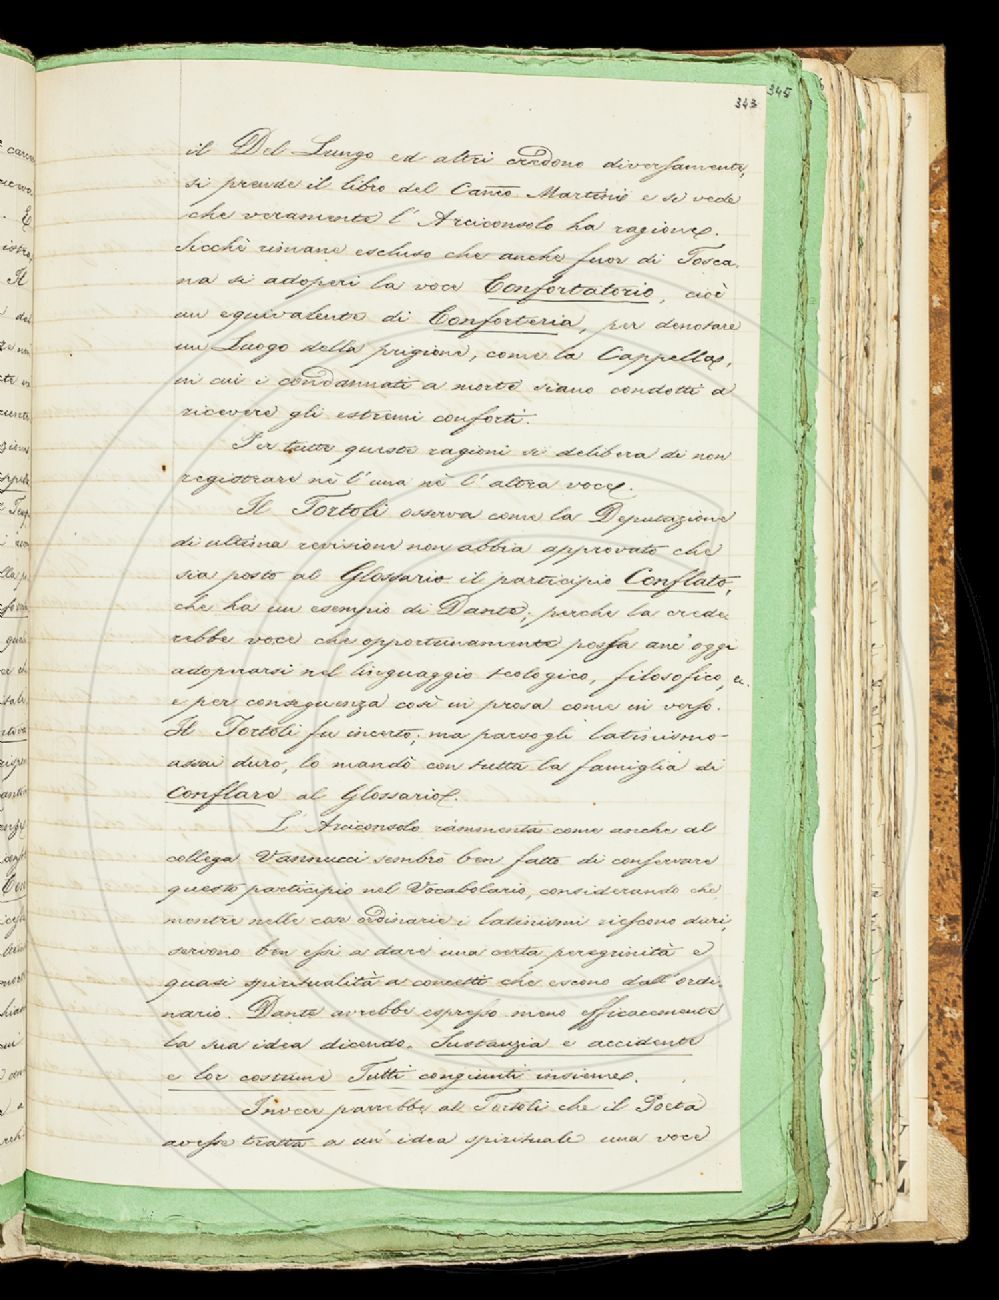 343
345
il Del Lungo ed altri credono diversamente,
si prende il libro del Canco Martini e si vede
che veramente l'Arciconsolo ha ragione.
Sicchè rimane escluso che anche fuor di Tosca-
na si adoperi la voce Confortatorio, cioè
un equivalente di Conforteria, per denotare
un Luogo della prigione, come la Cappella,
in cui i condannati a morte siano condotti a
ricevere gli estremi conforti.
Per tutte queste ragioni si delibera di non
registrare nè l'una nè l'altra voce.
Il Tortoli osserva come la Deputazione
di ultima revisione non abbia approvato che
sia posto al Glossario il participio Conflato,
che ha un esempio di Dante; perchè la crede-
rebbe voce che opportunamente possa anc'oggi
adoprarsi nel linguaggio teologico, filosofico, ec.
e per conseguenza così in prosa come in verso.
Il Tortoli fu incerto; ma parsogli latinismo
assai duro, lo mandò con tutta la famiglia di
Conflare al Glossario.
L'Arciconsolo rammenta come anche al
collega Vannucci sembrò ben fatto di conservare
questo participio nel Vocabolario, considerando che
mentre nelle cose ordinarie i latinismi riescono duri,
servono ben essi a dare una certa peregrinità e
quasi spiritualità a concetti che escono dall'ordi-
nario. Dante avrebbe espresso meno efficacemente
la sua idea dicendo. Sustanzia e accidente
e lor costume Tutti congiunti insieme.
Invece parrebbe al Tortoli che il Poeta
avesse tratta a un'idea spirituale una voce